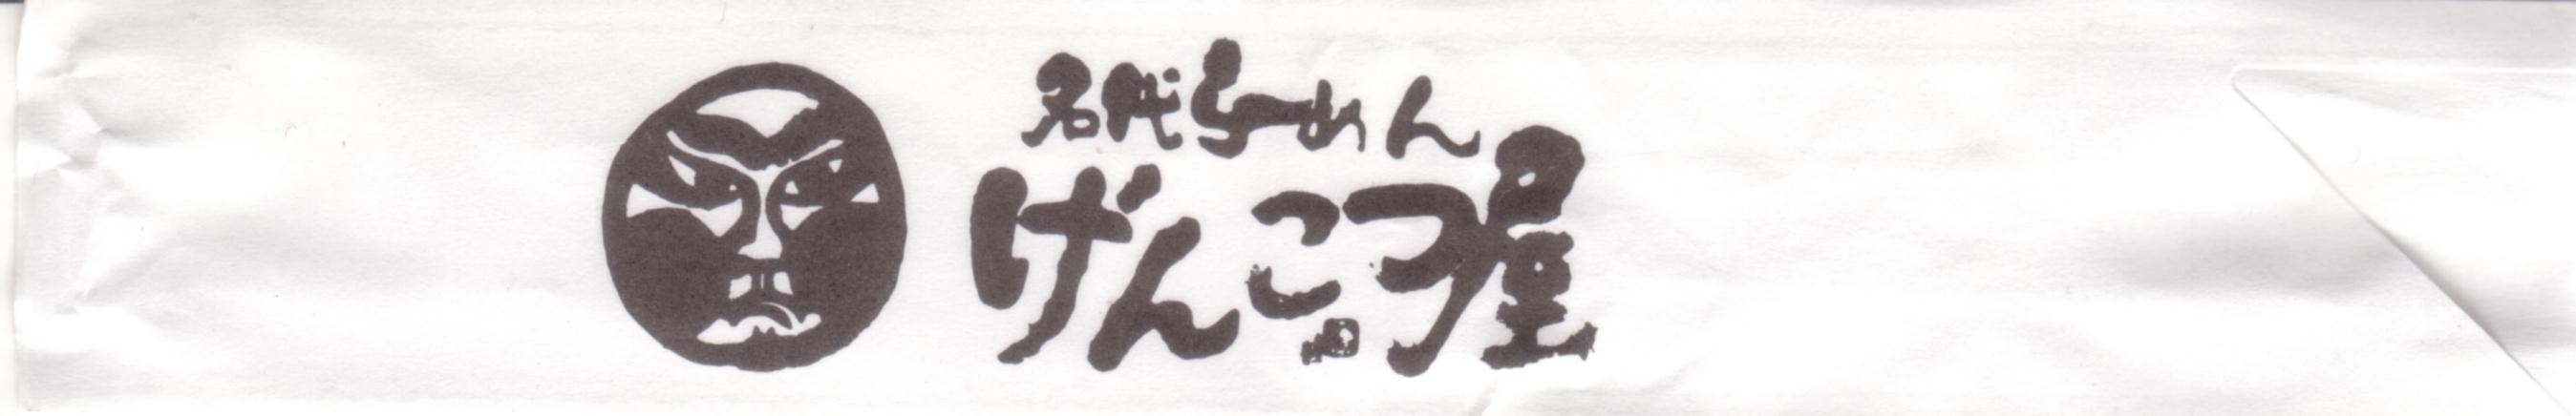 名代らーめん
げんこつ屋